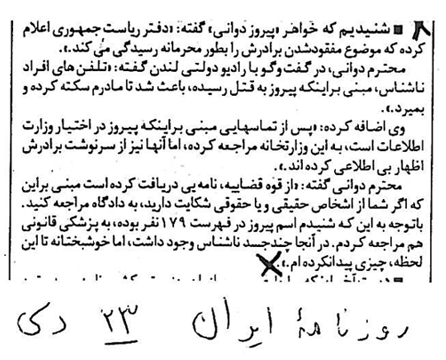 ■ شنیدیم که خواهر «پیروز دوانی» گفته: «دفتر ریاست جمهوری اعلام
کرده که موضوع مفقودشدن برادرش را بطور محرمانه رسیدگی می کند.».
محترم دوانی، در گفت وگو با رادیو دولتی لندن گفته: «تلفن های افراد
ناشناس، مبنی براینکه پیروز به قتل رسیده، باعث شد تا مادرم سکته کرده و
بمیرد.».
وی اضافه کرده: «پس از تماسهایی مبنی براینکه پیروز در اختیار وزارت
اطلاعات است، به این وزارتخانه مراجعه کرده، اما آنها نیز از سرنوشت برادرش
اظهار بی اطلاعی کرده اند.».
محترم دوانی گفته: «از قوه قضاییه، نامه یی دریافت کرده است مبنی براین
که اگر شما از اشخاص حقیقی و یا حقوقی شکایت دارید، به دادگاه مراجعه کنید.
باتوجه به این که شنیدم اسم پیروز در فهرست ۱۷۹ نفر بوده، به پزشکی قانونی
هم مراجعه کردم. در آنجا چندجسد ناشناس وجود داشت، اما خوشبختانه تا این
لحظه، چیزی پیدانکرده ام.».
روزنامهٔ ایران ۲۳ دی